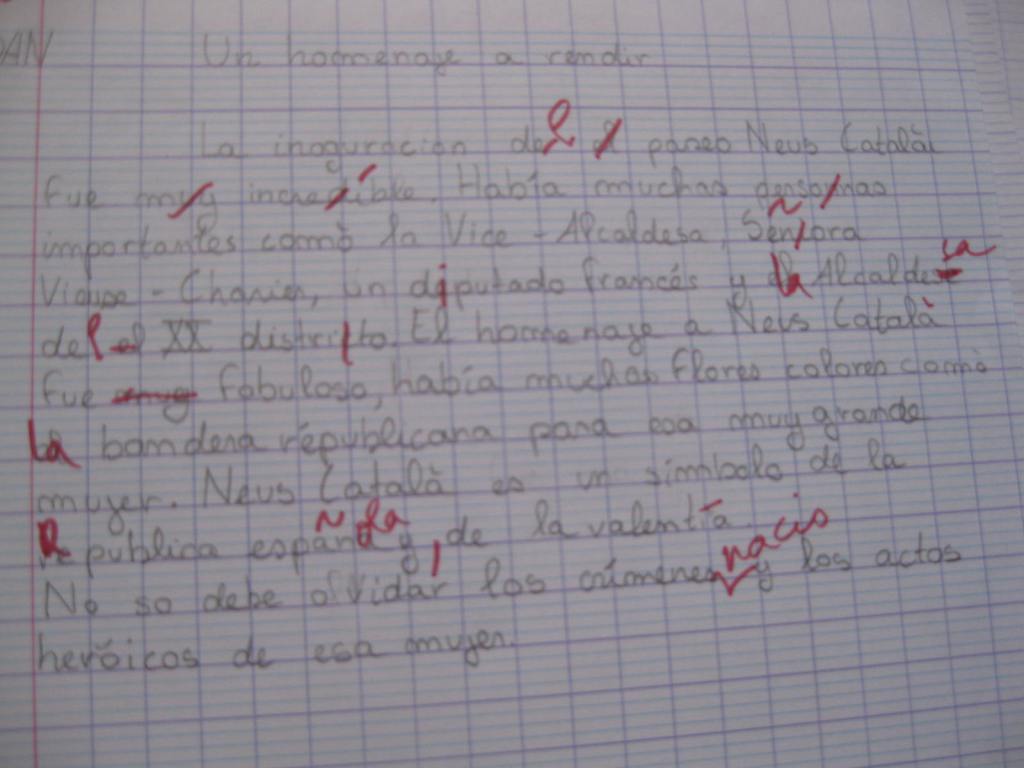 DAN Un homenage a rendir
La inoguracion del el paseo Neus Català
fue muy increíble. Había muchas personas
importantes como la Vice - Alcaldesa, Señora
Charier, un diputado francés y la Alcaldesa
del el XX distrito. El homenage a Neus Català
fue muy fabuloso, había muchas flores colores como
la bandera républicana para esa muy grande
mujer. Neus Català es un simbolo de la
Republica española, de la valentía.
No se debe olvidar los crímenes nacis y los actos
heróicos de esa mujer.